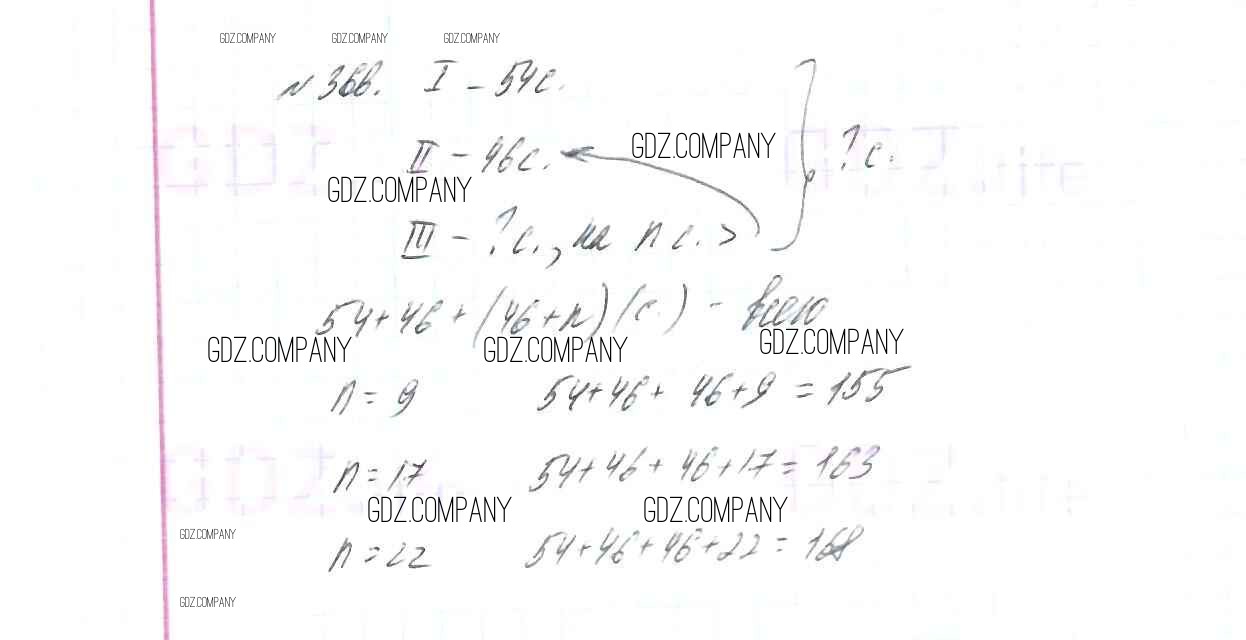 GDZ.COMPANY GDZ.COMPANY GDZ.COMPANY
№ 366. I – 54 с.
II – 46 с. GDZ.COMPANY ? с.
GDZ.COMPANY
III – ? с., на n с. >
54 + 46 + (46 + n) (с.) – всего
GDZ.COMPANY GDZ.COMPANY GDZ.COMPANY
n = 9 54 + 46 + 46 + 9 = 155
n = 17 54 + 46 + 46 + 17 = 163
GDZ.COMPANY GDZ.COMPANY
GDZ.COMPANY
n = 22 54 + 46 + 46 + 22 = 168
GDZ.COMPANY